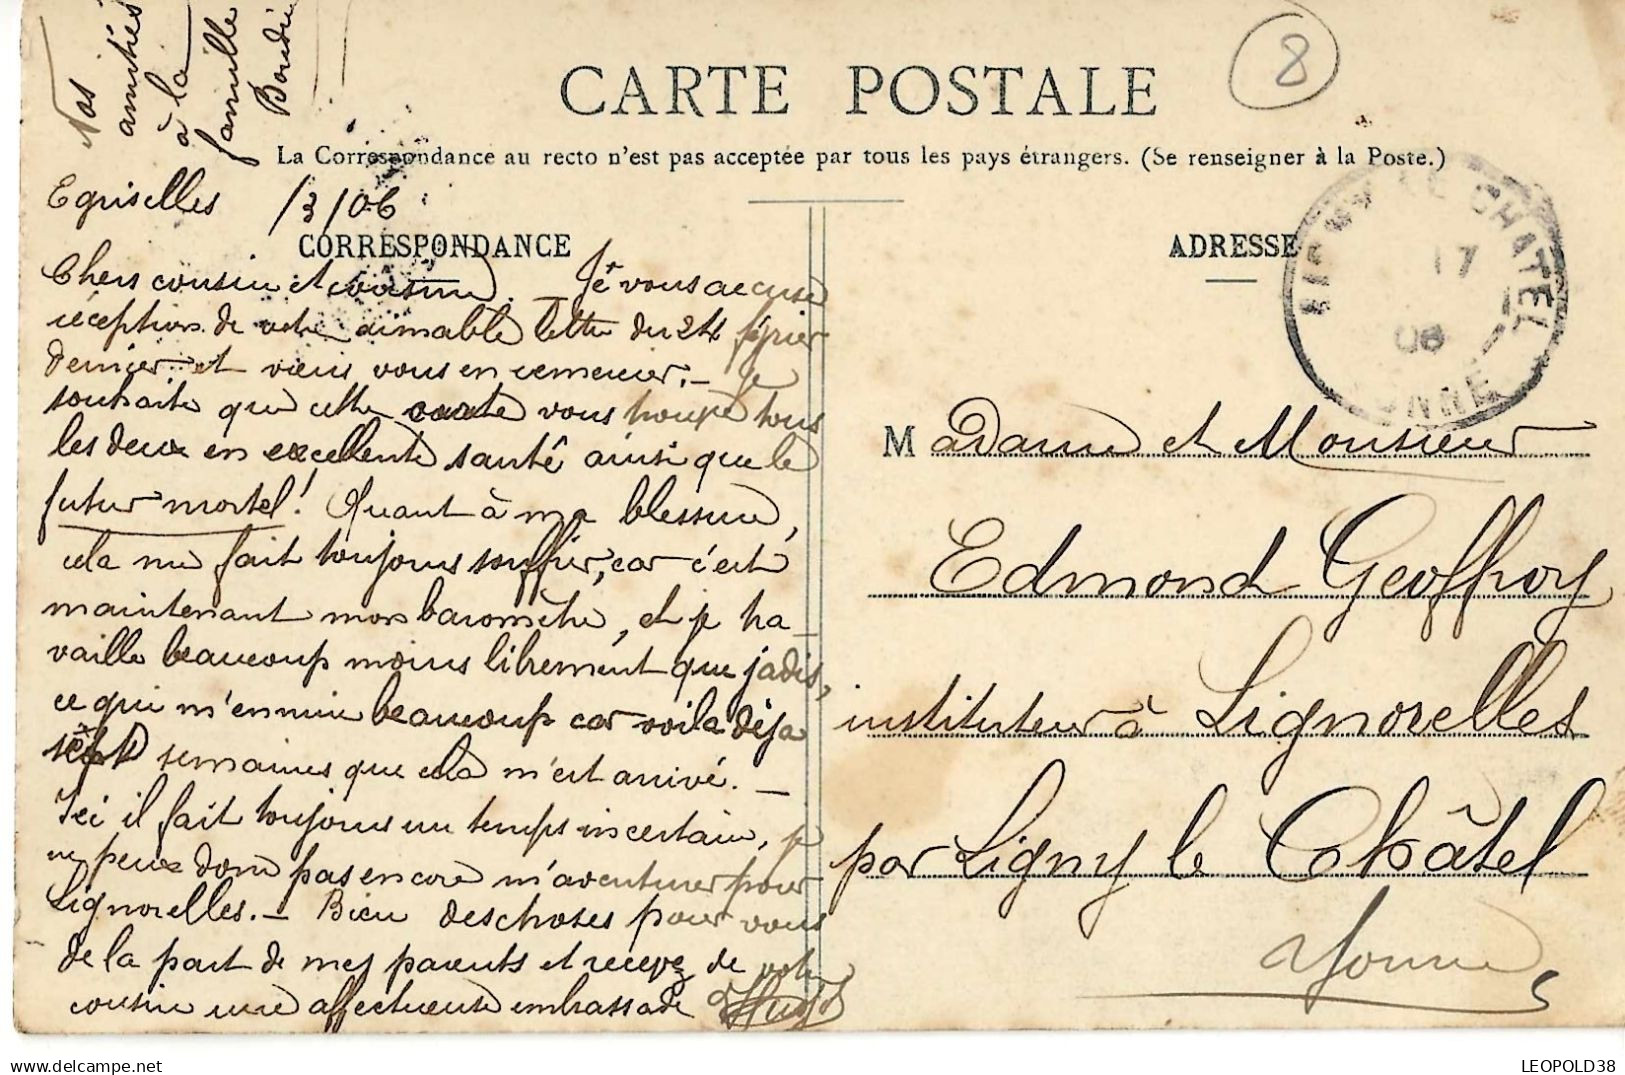 Nos
amitiés
à la
famille
CARTE POSTALE
8
La Correspondance au recto n'est pas acceptée par tous les pays étrangers. (Se renseigner à la Poste.)
Egriselles /3/06
CORRESPONDANCE
Chers cousin et cousine. _ Je vous accuse
réception de votre aimable lettre du 24 février
dernier et viens vous en remercier. _ Je
souhaite que cette carte vous trouve tous
les deux en excellente santé ainsi que le
futur mortel! Quant à ma blessure,
cela me fait toujours souffrir, car c'est
maintenant mon baromètre, et je tra_
vaille beaucoup moins librement que jadis,
ce qui m'ennuie beaucoup car voilà déjà
sept semaines que cela m'est arrivé. _
Ici il fait toujours un temps incertain, je
ne peux donc pas encore m'aventurer pour
Lignorelles. _ Bien des choses pour vous
de la part de mes parents et recevez de votre
cousin une affectueuse embrassade
ADRESSE
LIGNY LE CHATEL
17
06
YONNE
Madame et Monsieur
Edmond Geoffroy
instituteur à Lignorelles
par Ligny le Châtel
Yonne
LEOPOLD38
delcampe.net